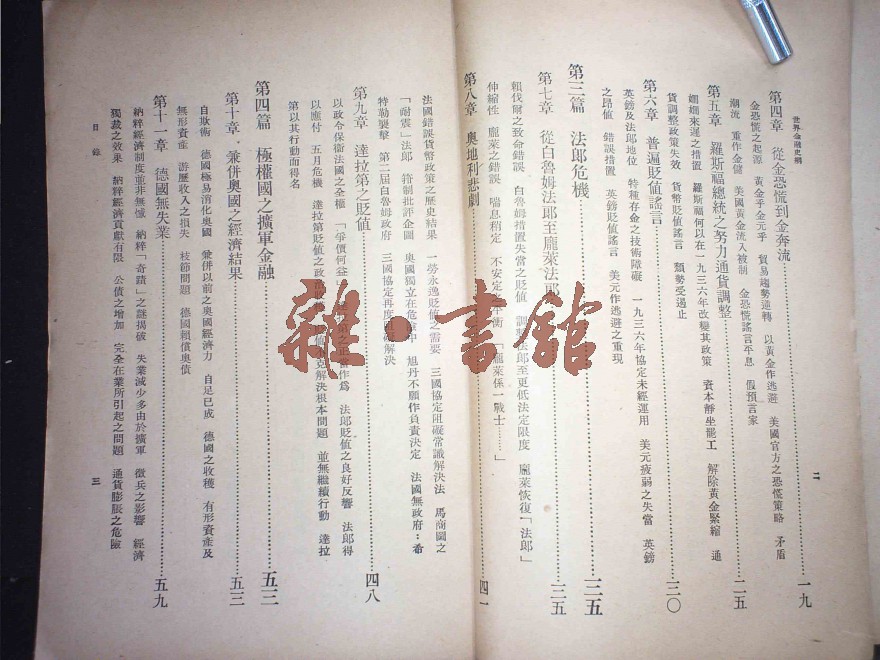 世界金融史綱
二
第四章 從金恐慌到金奔流……一九
金恐慌之起源 黃金乎金元乎 貿易趨勢逆轉 以黃金作逃避 美國官方之恐慌策略 矛盾
潮流 重作金儲 美國黃金流入被制 金恐慌謠言平息 假預言家
第五章 羅斯福總統之努力通貨調整……二五
姍姍來遲之措置 羅斯福何以在一九三六年改變其政策 資本靜坐罷工 解除黃金緊縮 通
貨調整政策失效 貨幣貶值謠言 頹勢受遏止
第六章 普遍貶值謠言……三〇
英鎊及法郎地位 特種存金之技術障礙 一九三六年協定未經運用 美元疲弱之失當 英鎊
之昂值 錯誤措置 英鎊貶值謠言 美元作逃避之重現
第三篇 法郎危機……三五
第七章 從白魯姆法郎至龐萊法郎……三五
賴伐爾之致命錯誤 白魯姆措置失當之貶值 調整法郎至更低法定限度 龐萊恢復「法郎」
伸縮性 龐萊之錯誤 喘息稍定 不安定之平衡 「龐萊係一戰士……」
第八章 奧地利悲劇……四一
法國錯誤貨幣政策之歷史結果 一勞永逸貶值之需要 三國協定阻礙常識解決法 馬商圖之
「耐震」法郎 箝制批評企圖 奧國獨立在危 中 旭丹不願作負責決定 法國無政府：希
特勒襲擊 第二屆白魯姆政府 三國協定再度 解決
第九章 達拉第之貶值……四八
以政令保衞法國之全權 「爭價何益」 值之正當作為 法郎貶值之良好反響 法郎得
以應付 五月危機 達拉第貶值之政治 值 克解決根本問題 並無繼續行動 達拉
第以其行動而得名
第四篇 極權國之擴軍金融……五三
第十章 兼併奧國之經濟結果……五三
自欺術 德國極易消化奧國 兼併以前之奧國經濟力 自足已成 德國之收穫 有形資產及
無形資產 游歷收入之損失 枝節問題 德國賴償奧債
第十一章 德國無失業……五九
納粹經濟制度並非無憾 納粹「奇蹟」之謎揭破 失業減少多由於擴軍 徵兵之影響 經濟
獨裁之效果 納粹經濟貢獻有限 公債之增加 完全在業所引起之問題 通貨膨脹之危險
目錄
三
雜·書館